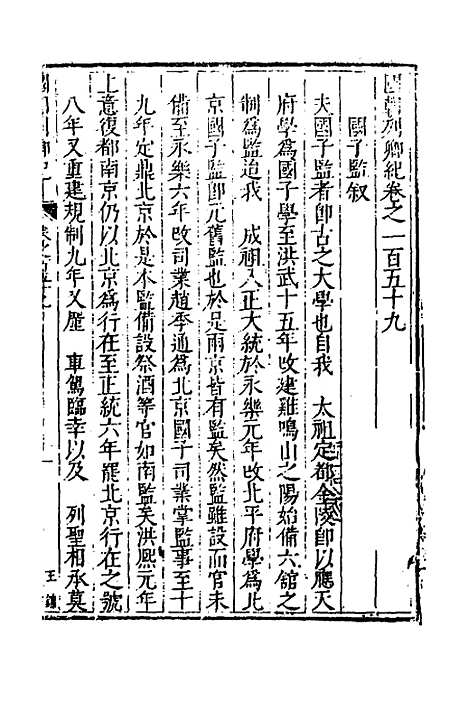 國朝列卿紀卷之一百五十九
國子監叙
夫國子監者卽古之大學也自我　太祖定都金陵卽以應天
府學爲國子學至洪武十五年改建雞鳴山之陽始備六舘之
制爲監造我　成祖入正大統於永樂元年改北平府學爲北
京國子監卽元舊監也於是兩京皆有監矣然監雖設而官未
備至永樂六年改司業趙季通爲北京國子司業掌監事至十
九年定鼎北京於是本監備設祭酒等官如南監矣洪熙元年
上意復都南京仍以北京爲行在至正統六年罷北京行在之號
八年又重建規制九年又塵　車駕臨幸以及　列聖相承莫
王